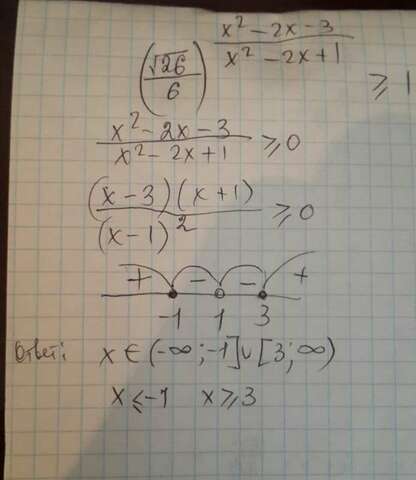 (√26/6)^((x² - 2x - 3)/(x² - 2x + 1)) ⩾ 1
(x² - 2x - 3)/(x² - 2x + 1) ⩾ 0
((x - 3)(x + 1))/(x - 1)² ⩾ 0
+ - - +
-1 1 3
Ответ: x ∈ (-∞; -1] ∪ [3; ∞)
x ⩽ -1 x ⩾ 3